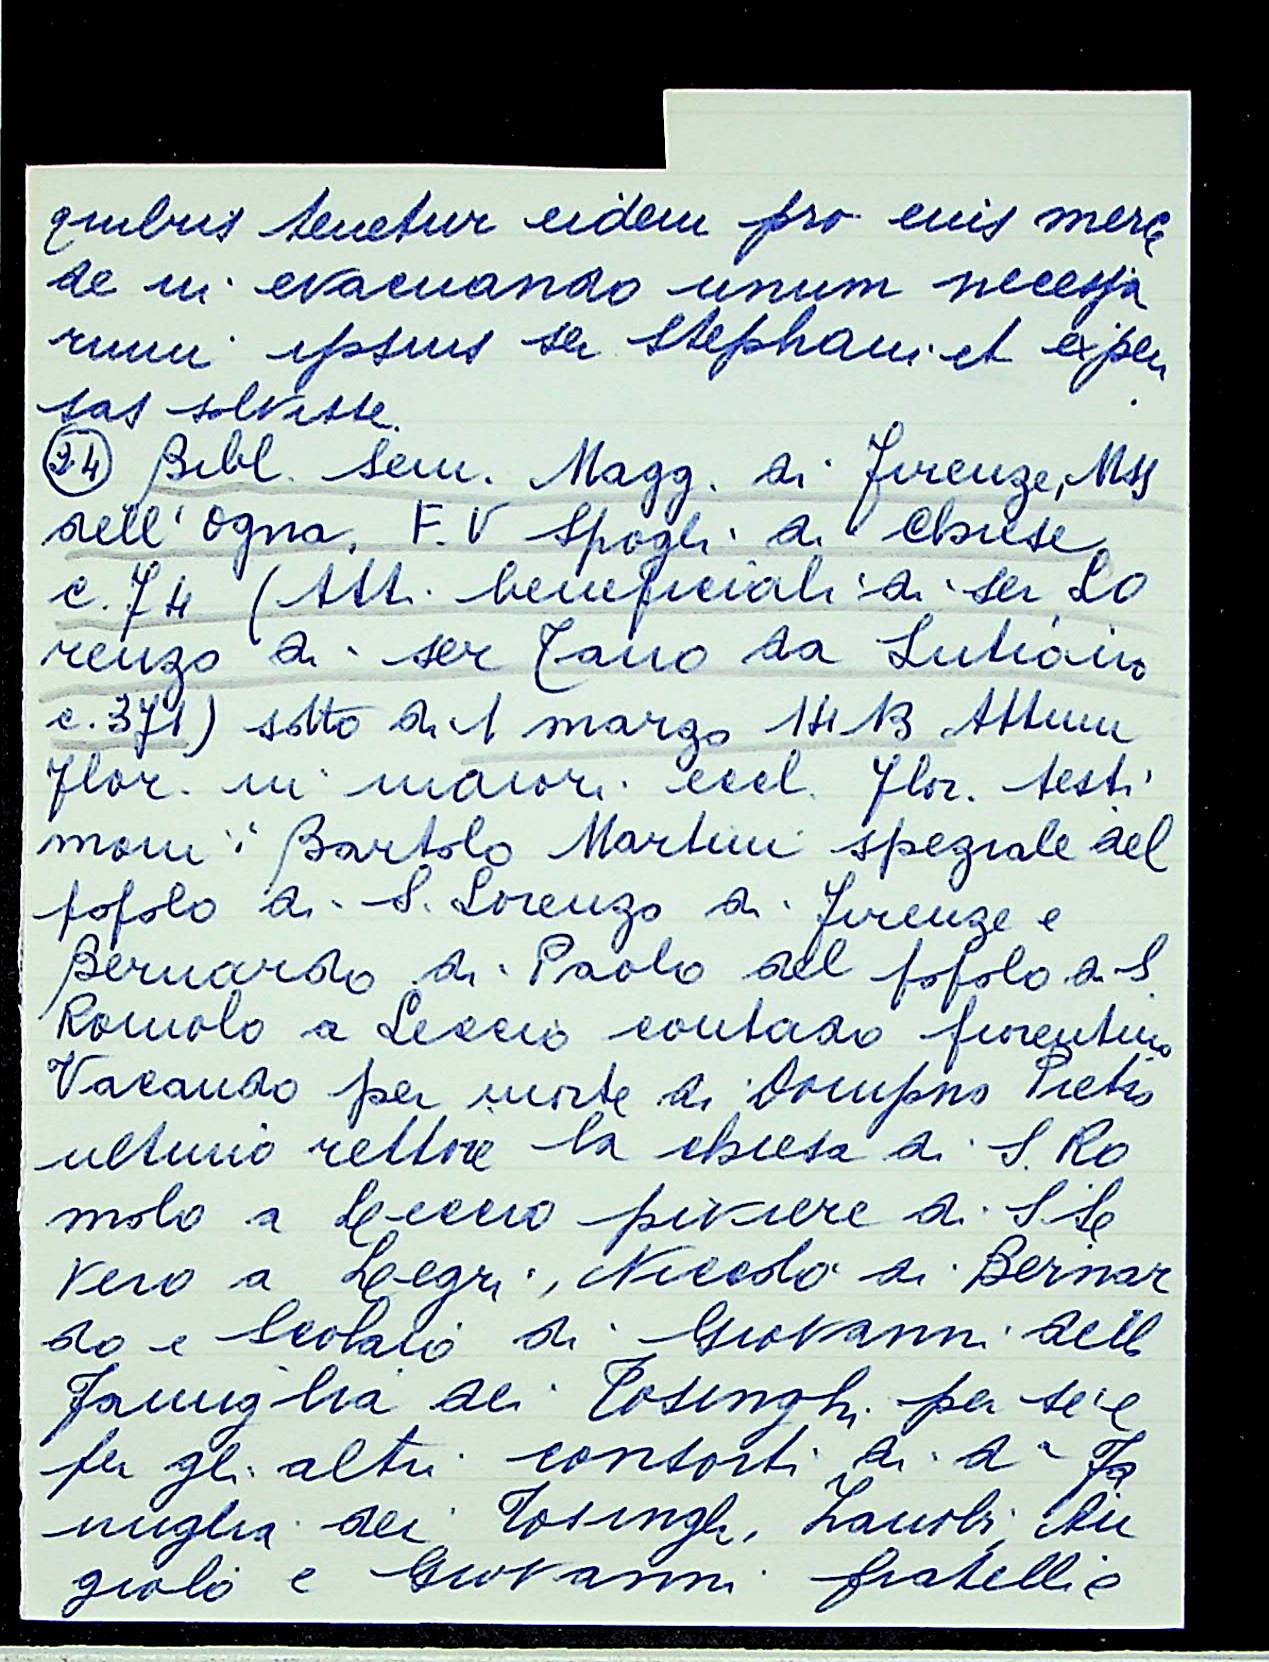 quibus tenetur eidem pro eius merce
de in evacuando unum necessa
rium ipsius ser Stephani et expen
sas solvisse.
(24) Bibl. Sem. Magg. di Firenze, Mss
dell'Ogna, F. V Spogli di Chiese
c. 74 (Atti beneficiali di ser Lo
renzo di ser Tano da Lutiano
c. 371) sotto dì 1 marzo 1413 Attum
Flor. in maiori eccl. Flor. testi
moni: Bartolo Martini speziale del
popolo di S. Lorenzo di Firenze e
Bernardo di Paolo del popolo di S.
Romolo a Leccio contado fiorentino
Vacando per morte di Dompno Pietro
ultimo rettore la chiesa di S. Ro
molo a Leccio piviere di S. Se
vero a Legri, Niccolò di Bernar
do e Scolaio di Giovanni della
Famiglia dei Tosinghi per se e
per gli altri consorti di da Fa
miglia dei Tosinghi, Zanobi, An
giolo e Giovanni fratelli e